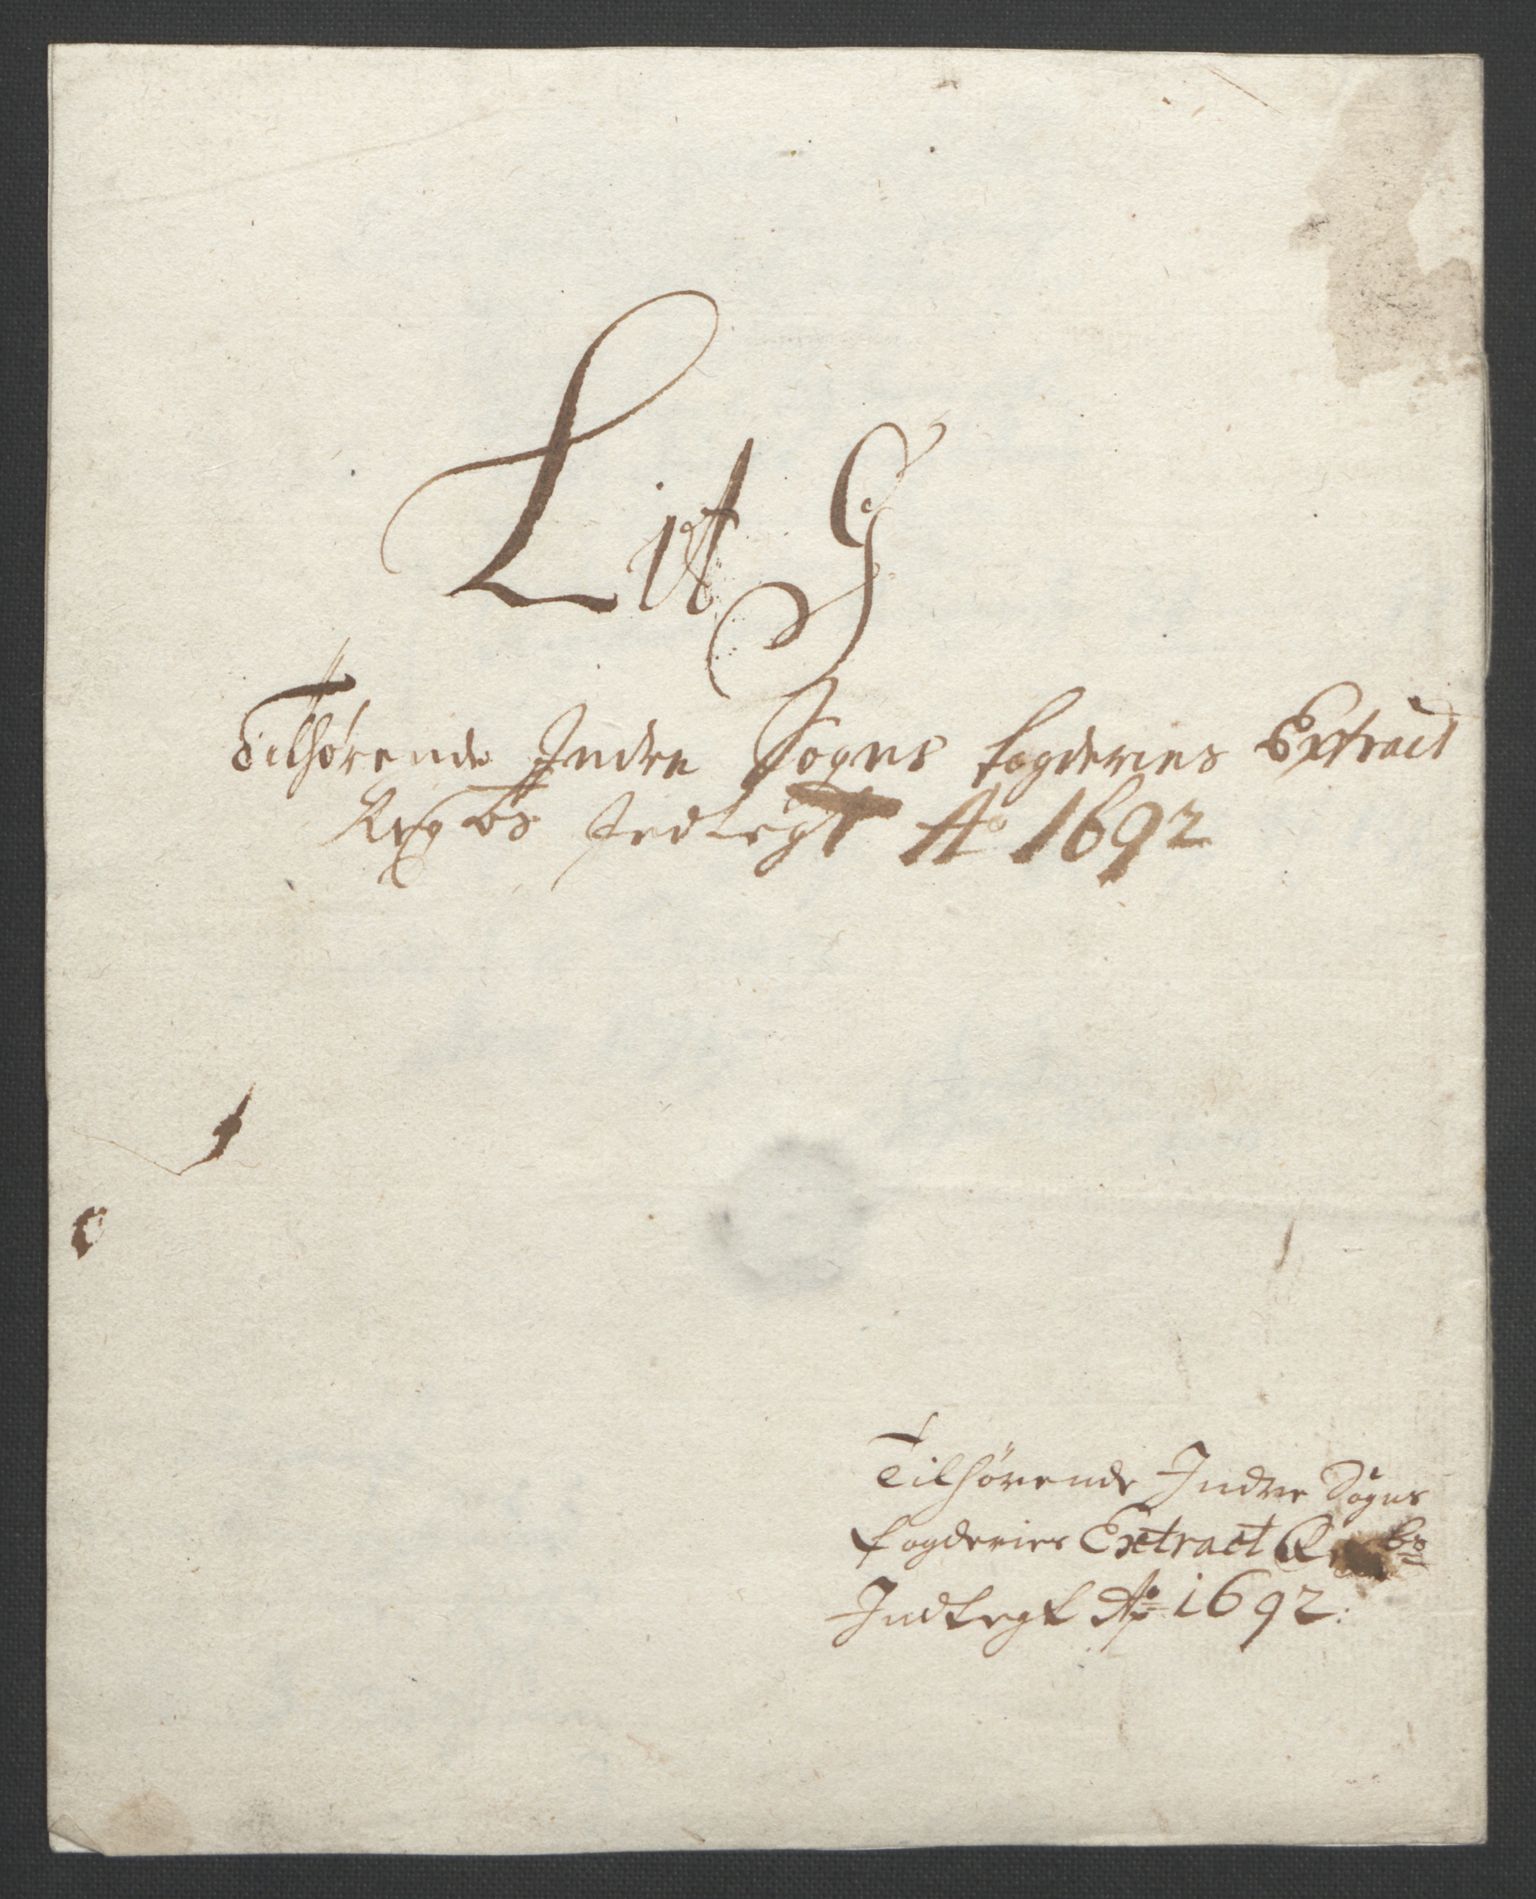 Lit G
Tilhørende Indre Sogns fogderies Extract
Regbs Indlegt Ao 1692
Tilhørende Indre Sogns
fogderies Extract
Indlegt Ao 1692: